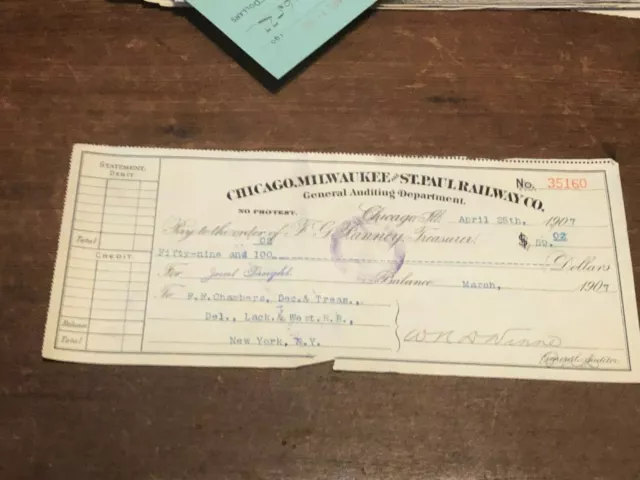 DOLLARS
190
STATEMENT.
DEBIT
Total
CREDIT
Balance
Total
CHICAGO, MILWAUKEE AND ST. PAUL RAILWAY CO.
General Auditing Department.
No. 35160
NO PROTEST.
Chicago, Ill. April 25th, 1907
Pay to the order of F. G. Ranney, Treasurer. $ 02
Fifty-nine and 100 02 Dollars
For Balance March, 1907
To F.F. Chambers, Sec. & Treas.,
Del., Lack. & West. R.R.,
New York, N.Y.
General Auditor.